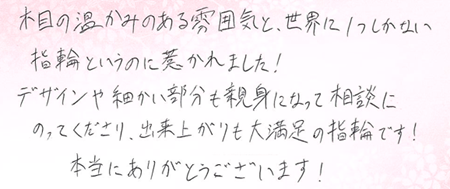 木目の温かみのある雰囲気と、世界に1つしかない
指輪というのに惹かれました!
デザインや細かい部分も親身になって相談に
のってくださり、出来上がりも大満足の指輪です!
本当にありがとうございます!